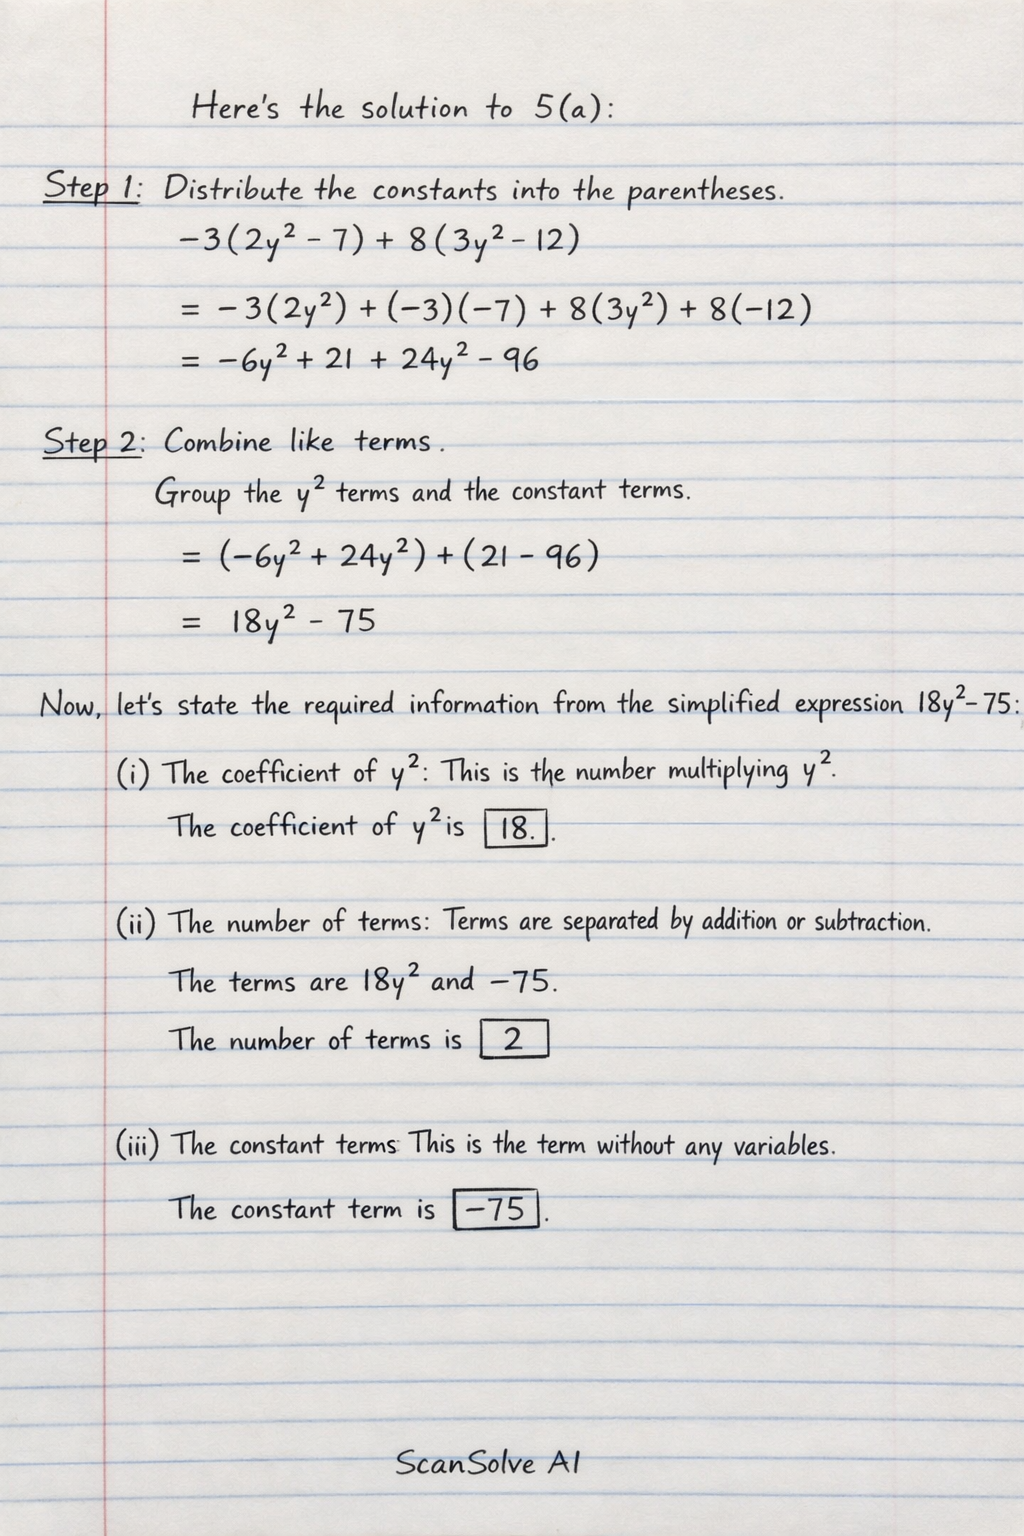 Here's the solution to 5(a):
Step 1: Distribute the constants into the parentheses.
−3(2y² − 7) + 8(3y² − 12)
= −3(2y²) + (−3)(−7) + 8(3y²) + 8(−12)
= −6y² + 21 + 24y² − 96
Step 2: Combine like terms.
Group the y² terms and the constant terms.
= (−6y² + 24y²) + (21 − 96)
= 18y² − 75
Now, let's state the required information from the simplified expression 18y²−75:
(i) The coefficient of y²: This is the number multiplying y².
The coefficient of y² is 18..
(ii) The number of terms: Terms are separated by addition or subtraction.
The terms are 18y² and −75.
The number of terms is 2
(iii) The constant terms: This is the term without any variables.
The constant term is −75.
ScanSolve AI